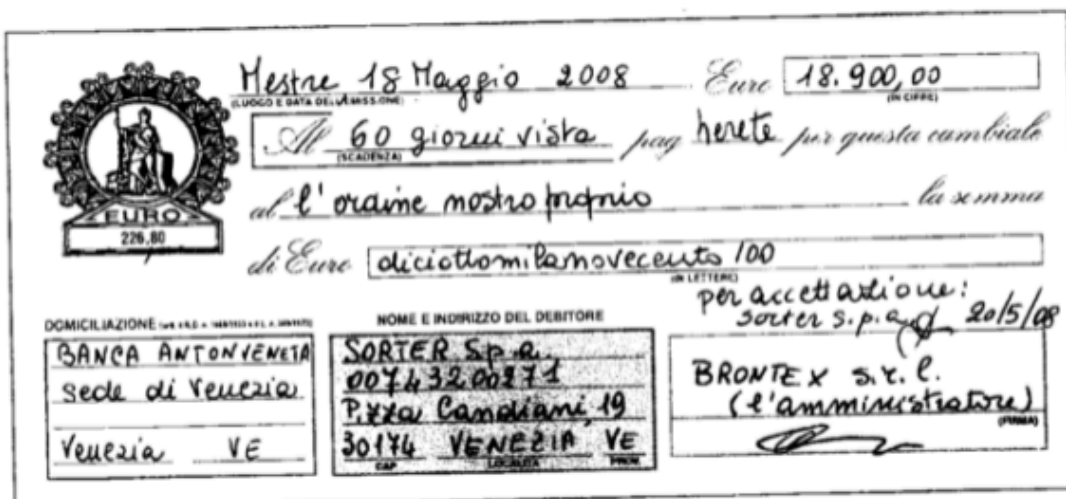 Mestre 18 Maggio 2008 Euro 18.900,00
(LUOGO E DATA DELL'EMISSIONE) (IN CIFRE)
Al 60 giorni vista pag herete per questa cambiale
(SCADENZA)
al l'ordine nostro proprio la somma
EURO
226,80
di Euro diciottomilanovecento/00
(IN LETTERE)
per accettazione:
sorter s.p.a. 20/5/08
DOMICILIAZIONE
BANCA ANTONVENETA
sede di Venezia
Venezia VE
NOME E INDIRIZZO DEL DEBITORE
SORTER S.p.a.
00743200271
P.zza Candiani, 19
30174 VENEZIA VE
CAP LOCALITÀ PROV.
BRONTEX s.r.l.
(l'amministratore)
(FIRMA)